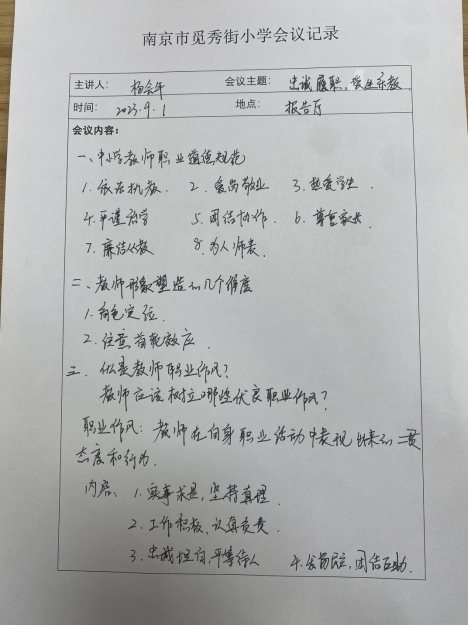 南京市觅秀街小学会议记录
主讲人： 杨会年 会议主题： 忠诚履职，爱生乐教
时间： 2023.9.1 地点： 报告厅
会议内容：
一、中小学教师职业道德规范
1. 依法执教. 2. 爱岗敬业 3. 热爱学生.
4. 严谨治学 5. 团结协作. 6. 尊重家长.
7. 廉洁从教 8. 为人师表.
二、教师形象塑造的几个维度
1. 角色定位.
2. 注意首轮效应.
三. 什么是教师职业作风？
教师应该树立哪些优良职业作风？
职业作风：教师在自身职业活动中表现出来的一贯
态度和行为.
内容： 1. 实事求是，坚持真理
2. 工作积极、认真负责.
3. 忠诚坦白，平等待人 4. 发扬民主，团结互助.